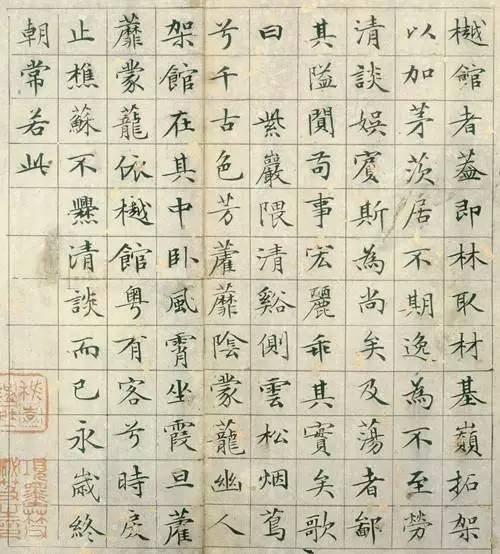 樾館者葢即林取材基巔拓架
以加茅茨居不期逸為不至勞
清談娛賓斯為尚矣及蕩者鄙
其隘閴苟事宏麗乖其實矣歌
曰 紫巖隈清谿側雲松烟蔦
兮千古色芳䕌蘼陰蒙蘢幽人
架館在其中卧風霄坐霞旦䕌
蘼蒙蘢依樾館粵有客兮時戾
止樵蘇不爨清談而已永歲終
朝常若此